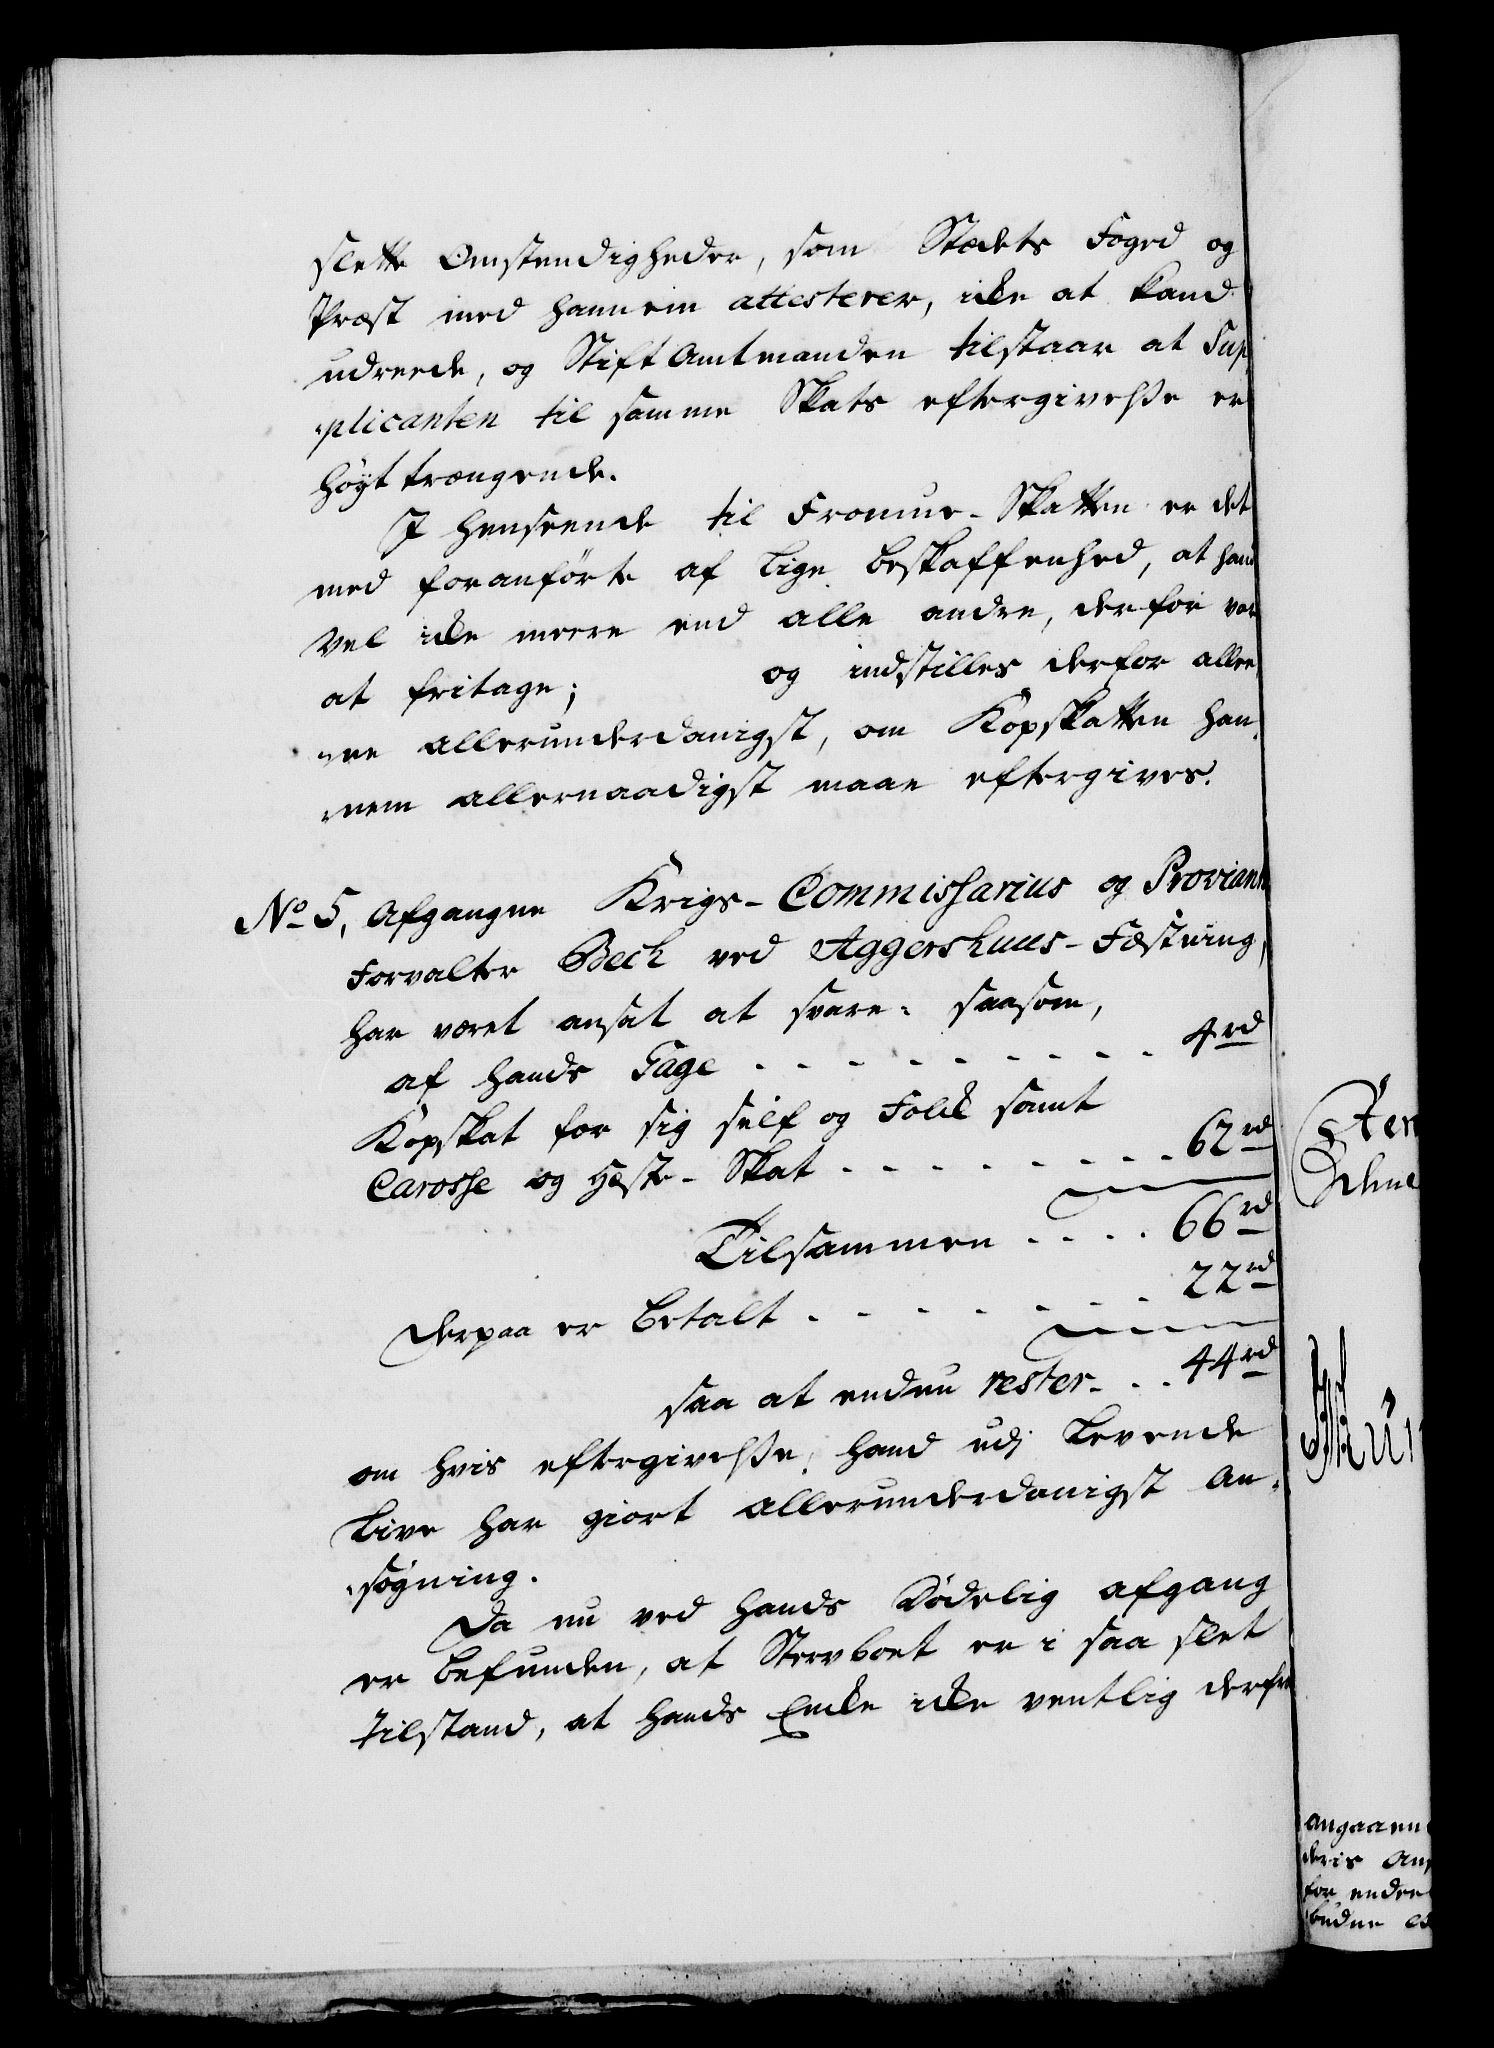 slette Omstendigheder, som Stædets Foged og
Præst med hannem attesterer, icke at kand
udreede, og Stift Amtmanden tilstaar at Sup-
plicanten til samme Skats eftergivelsse er
höyt trængende.
I henseende til Formue-Skatten er det
med foranförte af lige beskaffenhed, at hand
vel icke meere end alle andre, derfor var
at fritage; og indstilles derfor allee-
ne allerunderdanigst, om Kopskatten han-
nem allernaadigst maae eftergives.
No 5, Afgangne Krigs-Commissarius og Proviant
Forvalter Beck ved Aggershuus-Fæstning,
har været ansat at svare: saasom,
af hands Gage - - - - - - - - - 4 rd
Kopskat for sig self og Folck samt
Carosse og Heste-Skat - - - - - - - - 62 rd
Tilsammen - - - - 66 rd
Derpaa er betalt - - - - - - - - 22 rd
saa at endnu rester - - - 44 rd
om hvis eftergivelsse, hand udj Levende
Live har giort allerunderdanigst An-
søgning.
Da nu ved hands Dödelig afgang
er befunden, at Stervboet er i saa slet
tilstand, at hands Encke icke ventelig derfra
angaaen
deris An
for endee
budne